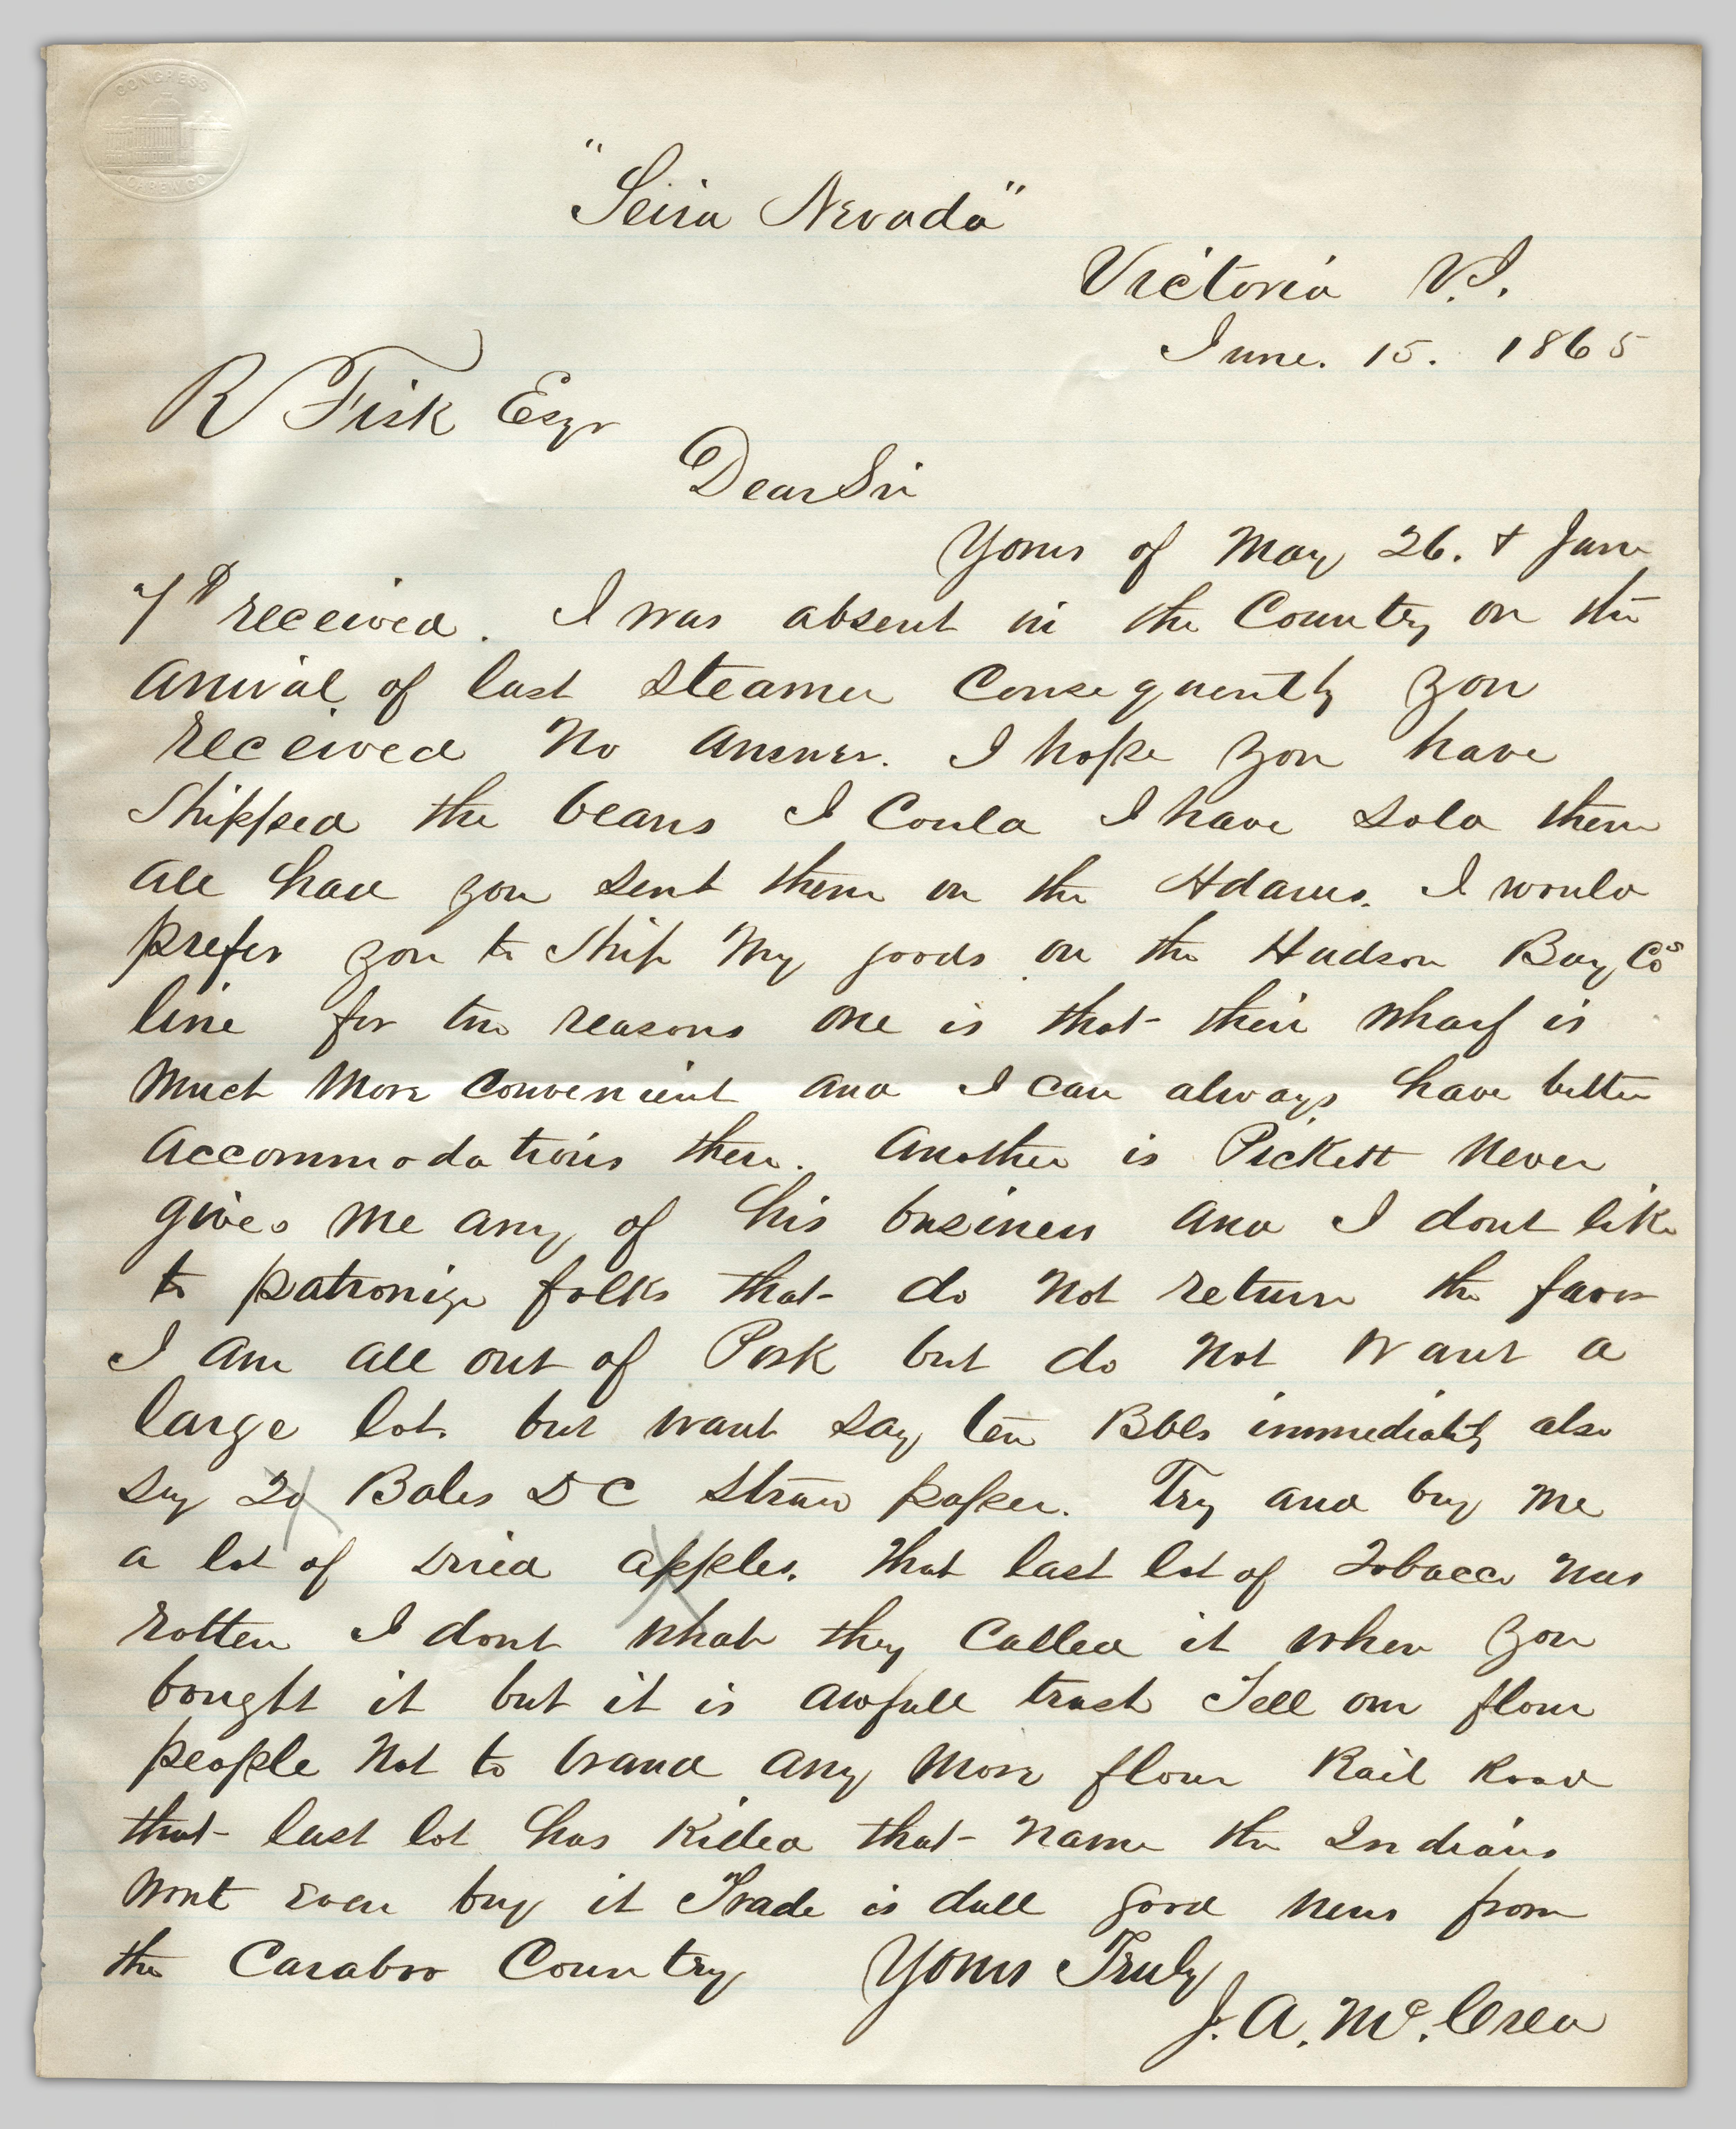 CONGRESS
CAREW CO
"Seira Nevada"
Victoria V.I.
June. 15. 1865
R Fisk Esqr
Dear Sir
Yours of May 26. & June
7th received. I was absent in the Country on the
arrival of last steamer Consequently you
received no answer. I hope you have
Shipped the beans I Could I have sold them
all had you sent them on the Adams. I would
prefer you to Ship my goods on the Hudson Bay Cos
line for two reasons one is that their wharf is
much more convenient and I can always have better
accommodations there. Another is Pickett never
gives me any of his business and I dont like
to patronize folks that do not return the favor
I am all out of Pork but do not want a
large lot. but want say ten Bbls immediately also
say 20 Bales DC straw paper. Try and buy me
a lot of dried apples. that last lot of Tobacco was
rotten I dont what they Called it when you
bought it but it is awfull trash Tell our flour
people not to brand any more flour Rail Road
that last lot has Killed that name the Indians
wont even buy it Trade is dull good news from
the Caraboo Country Yours Truly
J. A. Mc. Crea